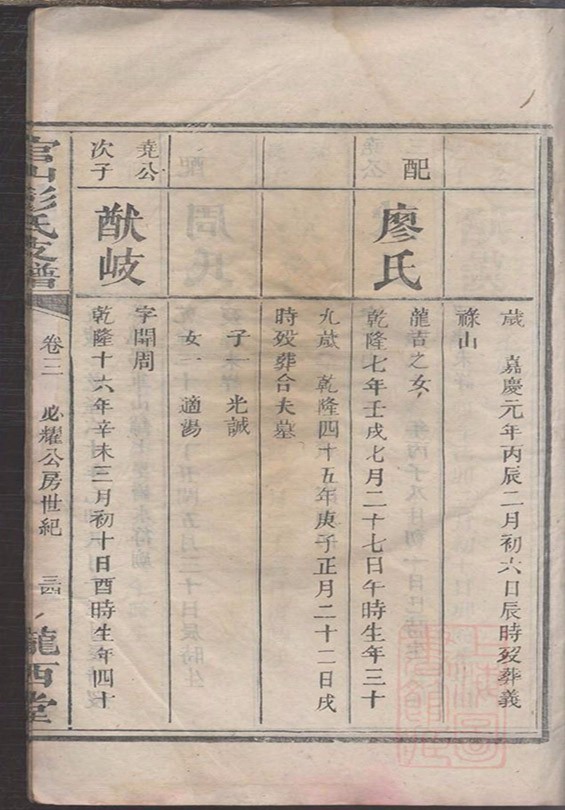 歲 嘉慶元年丙辰二月初六日辰時歿葬義
祿山
配
廖氏
龍吉之女
乾隆七年壬戌七月二十七日午時生年三十
九歲 乾隆四十五年庚子正月二十二日戌
時歿葬合夫墓
子一 光誠
女一 適湯
堯公
次子
猷岐
字開周
乾隆十六年辛未三月初十日酉時生年四十
官山彭氏支譜
卷三 必耀公房世紀 三四
隴西堂